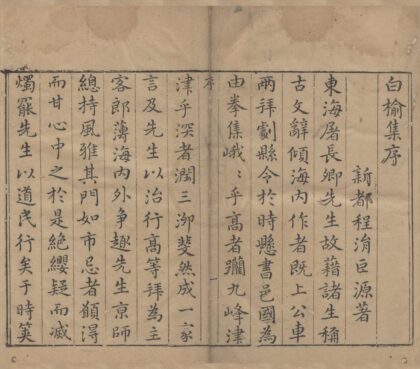 白榆集序
新都程涓巨源著
東海屠長卿先生故藉諸生稱
古文辭傾海内作者既上公車
兩拜劇縣令於時懸書邑國為
由拳集峨峨乎高者躡九峰津
序
津乎深者濶三泖斐然成一家
言及先生以治行高等拜為主
客郎薄海内外争趣先生京師
總持風雅其門如市忌者顧得
而甘心中之於是絶纓疑而滅
燭罷先生以道民行矣于時筴